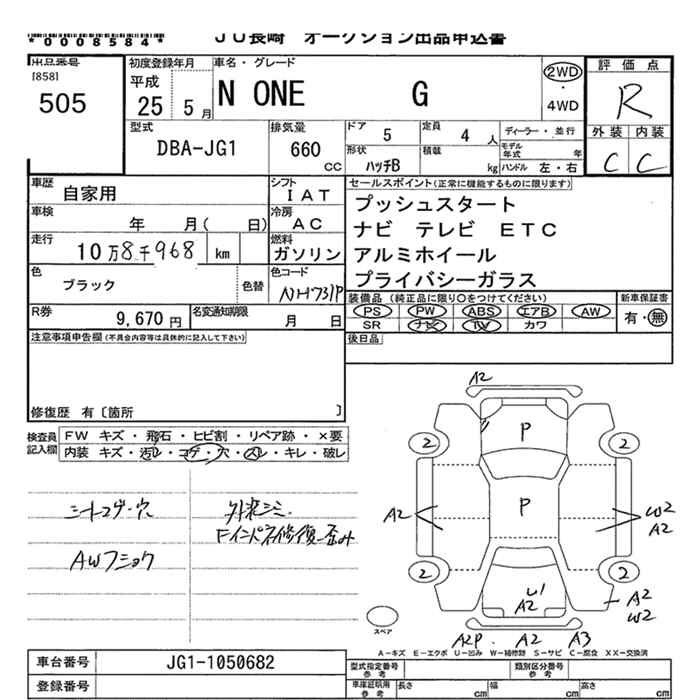 *0008584*
JU長崎 オークション出品申込書
出品番号
[858]
505
初度登録年月
平成
25 5月
車名・グレード
N ONE G
2WD
・
4WD
評価点
R
外装 内装
C C
型式
DBA-JG1
排気量
660
CC
ドア 5
定員 4 人
ディーラー・並行
形状
ハッチB
積載
kg
モデル年式 年
ハンドル 左・右
車歴
自家用
シフト
IAT
車検
年 月( 日)
冷房
AC
走行
10万8千968 km
燃料
ガソリン
色
ブラック
色替
色コード
NH731P
セールスポイント(正常に機能するものに限ります)
プッシュスタート
ナビ テレビ ETC
アルミホイール
プライバシーガラス
R券
9,670 円
名変通知期限
月 日
装備品 (純正品に限り○をつけてください)
PS PW ABS エアB AW
SR ナビ TV カワ
新車保証書
有・無
注意事項申告欄(不具合内容等は具体的に記入して下さい)
後日品
修復歴 有〔箇所 〕
検査員
記入欄
FW キズ・飛石・ヒビ割・リペア跡・×要
内装 キズ・汚レ・コゲ・穴・スレ・キレ・破レ
シートコゲ・穴
AWフショク
外装シミ
Fインパネ修復 歪み
A2
P
P
2
2
2
2
A2
W2
A2
U1
A2
A2
W2
A2P
A2
A3
スペア
A-キズ E-エクボ U-凹み W-補修跡 S-サビ C-腐食 XX-交換済
車台番号
JG1-1050682
登録番号
型式指定番号
参考
類別区分番号
参考
車庫証明用
参考
長さ cm
幅 cm
高さ cm